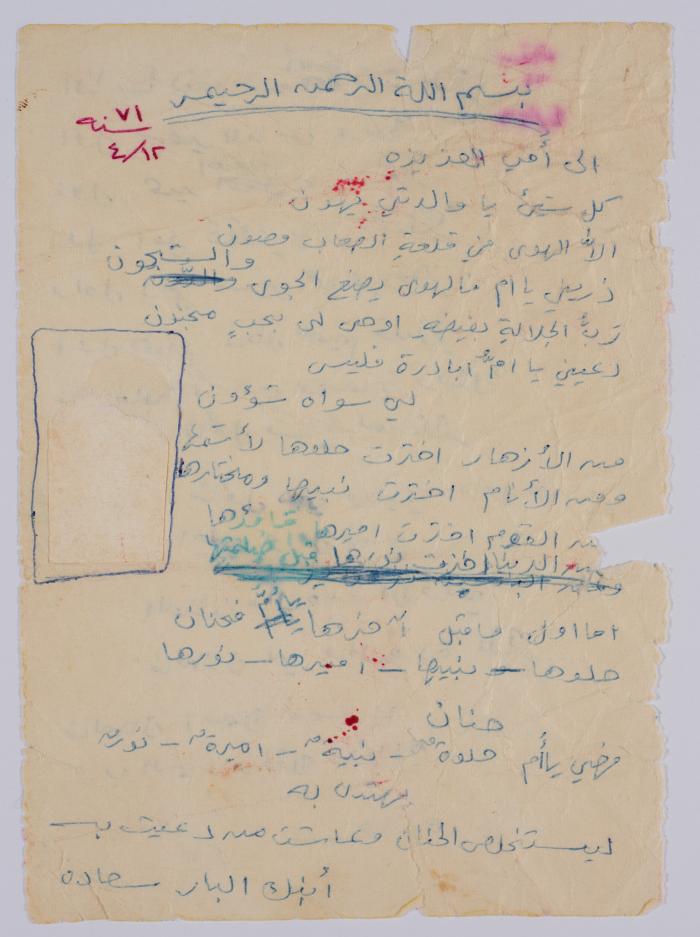 بسم اللة الرحمن الرحيم
سنه ٧١
٤/١٢
الى أمي العزيزه
كل شيئ يا والدتي يهون
الاَّ الهوى من قلعةِ الصعاب وصون
ذريني ياام مالهوى يصنع الجوى والشجون
ربُّ الجلالةِ بفيضهِ اوحى لي بحبٍ مجنون
دعيني يا امُّ ابادرة فليس
لي سواه شؤون
من الأزهار اخترت حلوها لأشتمَّ
ومن الأنام اخترت نبيها ومختارها
من القوم اخترت اميرها قائدها
ومن الدنيا اخترت نورها قبل ظلمتها
اما اول ما قبل آخرها ياأمُّ فحنان
حلوها - نبيها - اميرها - نورها
حنان
فهي ياأم حلوة - نبية - اميرة - نورٌ
يهتدى به
ليستخلص الحنان وعاشت من دعيت بـ
أبنك البار سعاده